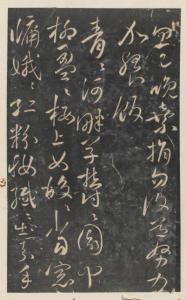 忽已晚棄捐勿復道努力
加餐飯
青〻河畔草鬱〻園中
柳盈〻樓上女皎〻當窗
牖娥〻紅粉妝纖〻出素手